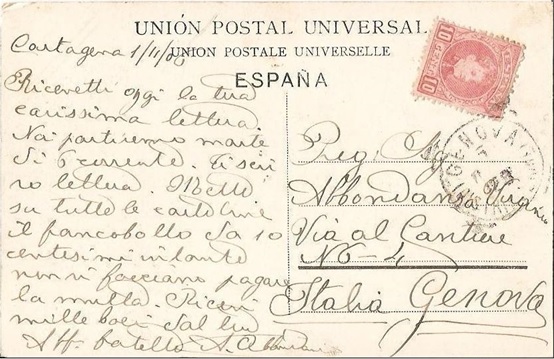 UNIÓN POSTAL UNIVERSAL
UNION POSTALE UNIVERSELLE
ESPAÑA
Cartagena 1/11/
Ricevetti oggi la tua
carissima lettera.
Noi partiremo marte
di 6 corrente. Ti scri
ro lettera. Metti
su tutte le cartoline
il francobollo da 10
centesimi
non vi facciano pagare
la multa. Ricevi
mille baci dal tuo
Aff. fratello A.
10 10
GENOVA
Preg. Sig.
Abbondanza
Via al Cantiere
No - 4
Italia Genova